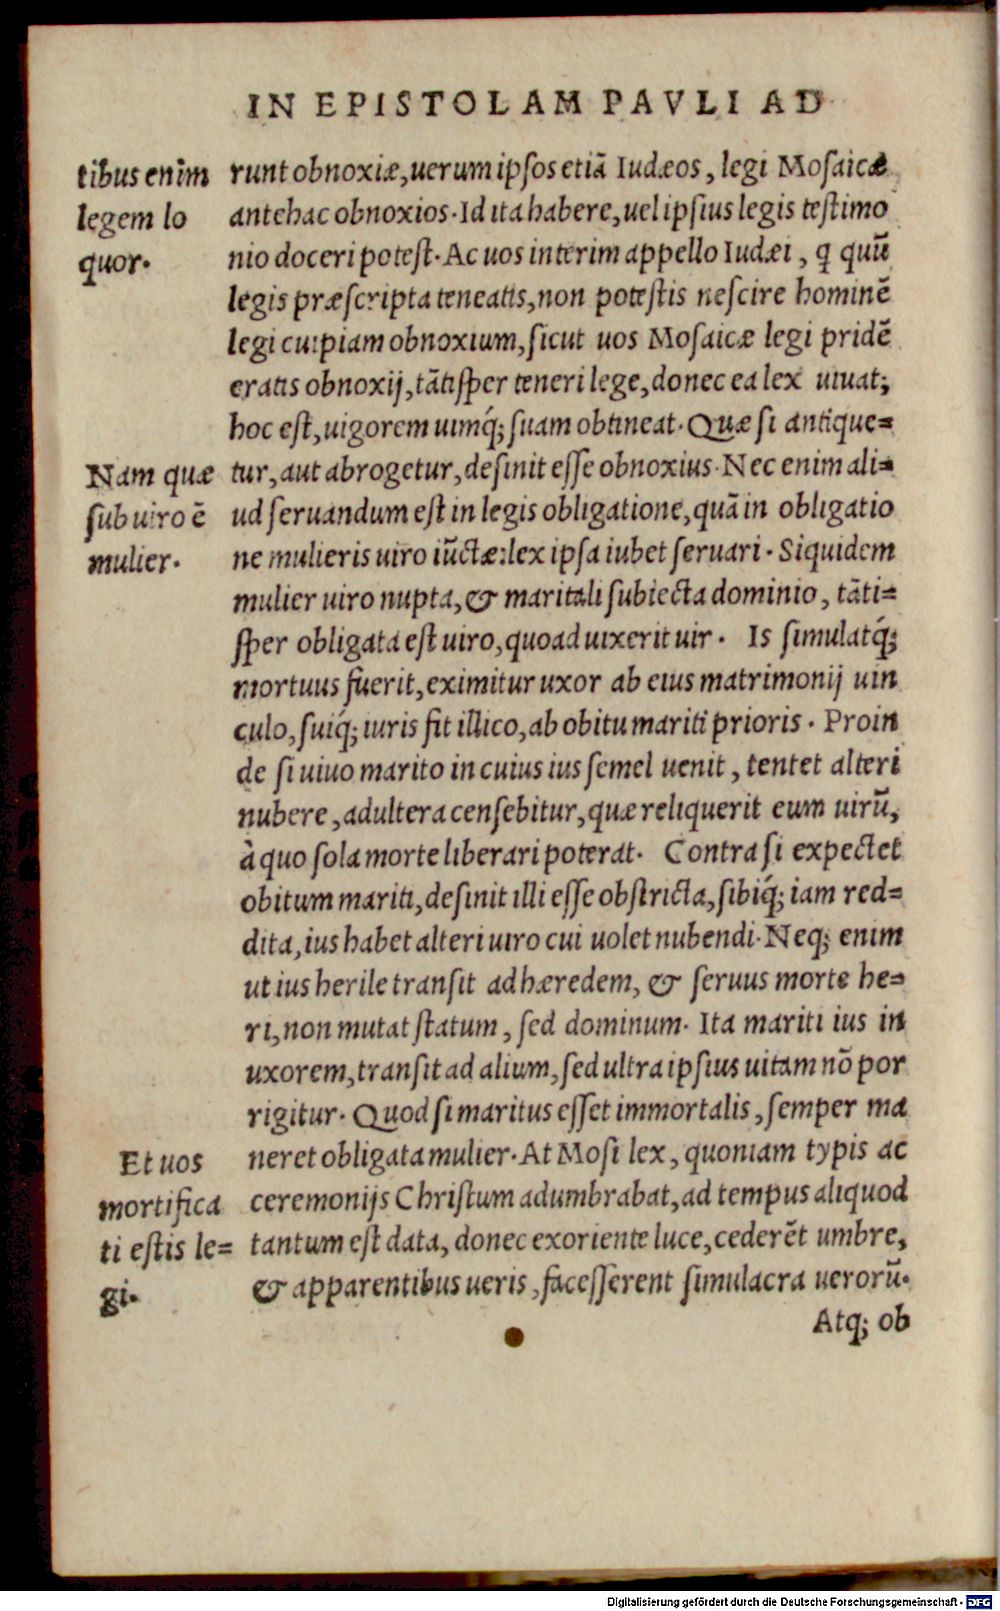 IN EPISTOLAM PAVLI AD
tibus enim
legem lo
quor.
runt obnoxiæ, uerum ipsos etiã Iudæos, legi Mosaicæ
antehac obnoxios. Id ita habere, uel ipsius legis testimo
nio doceri potest. Ac uos interim appello Iudæi, q quũ
legis præscripta teneatis, non potestis nescire hominẽ
legi cuipiam obnoxium, sicut uos Mosaicæ legi pridẽ
eratis obnoxij, tãtisper teneri lege, donec ea lex uiuat;
hoc est, uigorem uimq́; suam obtineat. Quæ si antique=
Nam quæ
sub uiro ẽ
mulier.
tur, aut abrogetur, desinit esse obnoxius. Nec enim ali=
ud seruandum est in legis obligatione, quã in obligatio
ne mulieris uiro iũctæ: lex ipsa iubet seruari. Siquidem
mulier uiro nupta, & maritali subiecta dominio, tãti=
sper obligata est uiro, quoad uixerit uir. Is simulatq́;
mortuus fuerit, eximitur uxor ab eius matrimonij uin
culo, suiq́; iuris fit illico, ab obitu mariti prioris. Proin
de si uiuo marito in cuius ius semel uenit, tentet alteri
nubere, adultera censebitur, quæ reliquerit eum uirũ,
à quo sola morte liberari poterat. Contra si expectet
obitum mariti, desinit illi esse obstricta, sibiq́; iam red=
dita, ius habet alteri uiro cui uolet nubendi. Neq; enim
ut ius herile transit ad hæredem, & seruus morte he=
ri, non mutat statum, sed dominum. Ita mariti ius in
uxorem, transit ad alium, sed ultra ipsius uitam nõ por
rigitur. Quod si maritus esset immortalis, semper ma
Et uos
mortifica
ti estis le=
gi.
neret obligata mulier. At Mosi lex, quoniam typis ac
ceremonijs Christum adumbrabat, ad tempus aliquod
tantum est data, donec exoriente luce, cederẽt umbre,
& apparentibus ueris, facesserent simulacra uerorũ.
Atq; ob
Digitalisierung gefördert durch die Deutsche Forschungsgemeinschaft - DFG